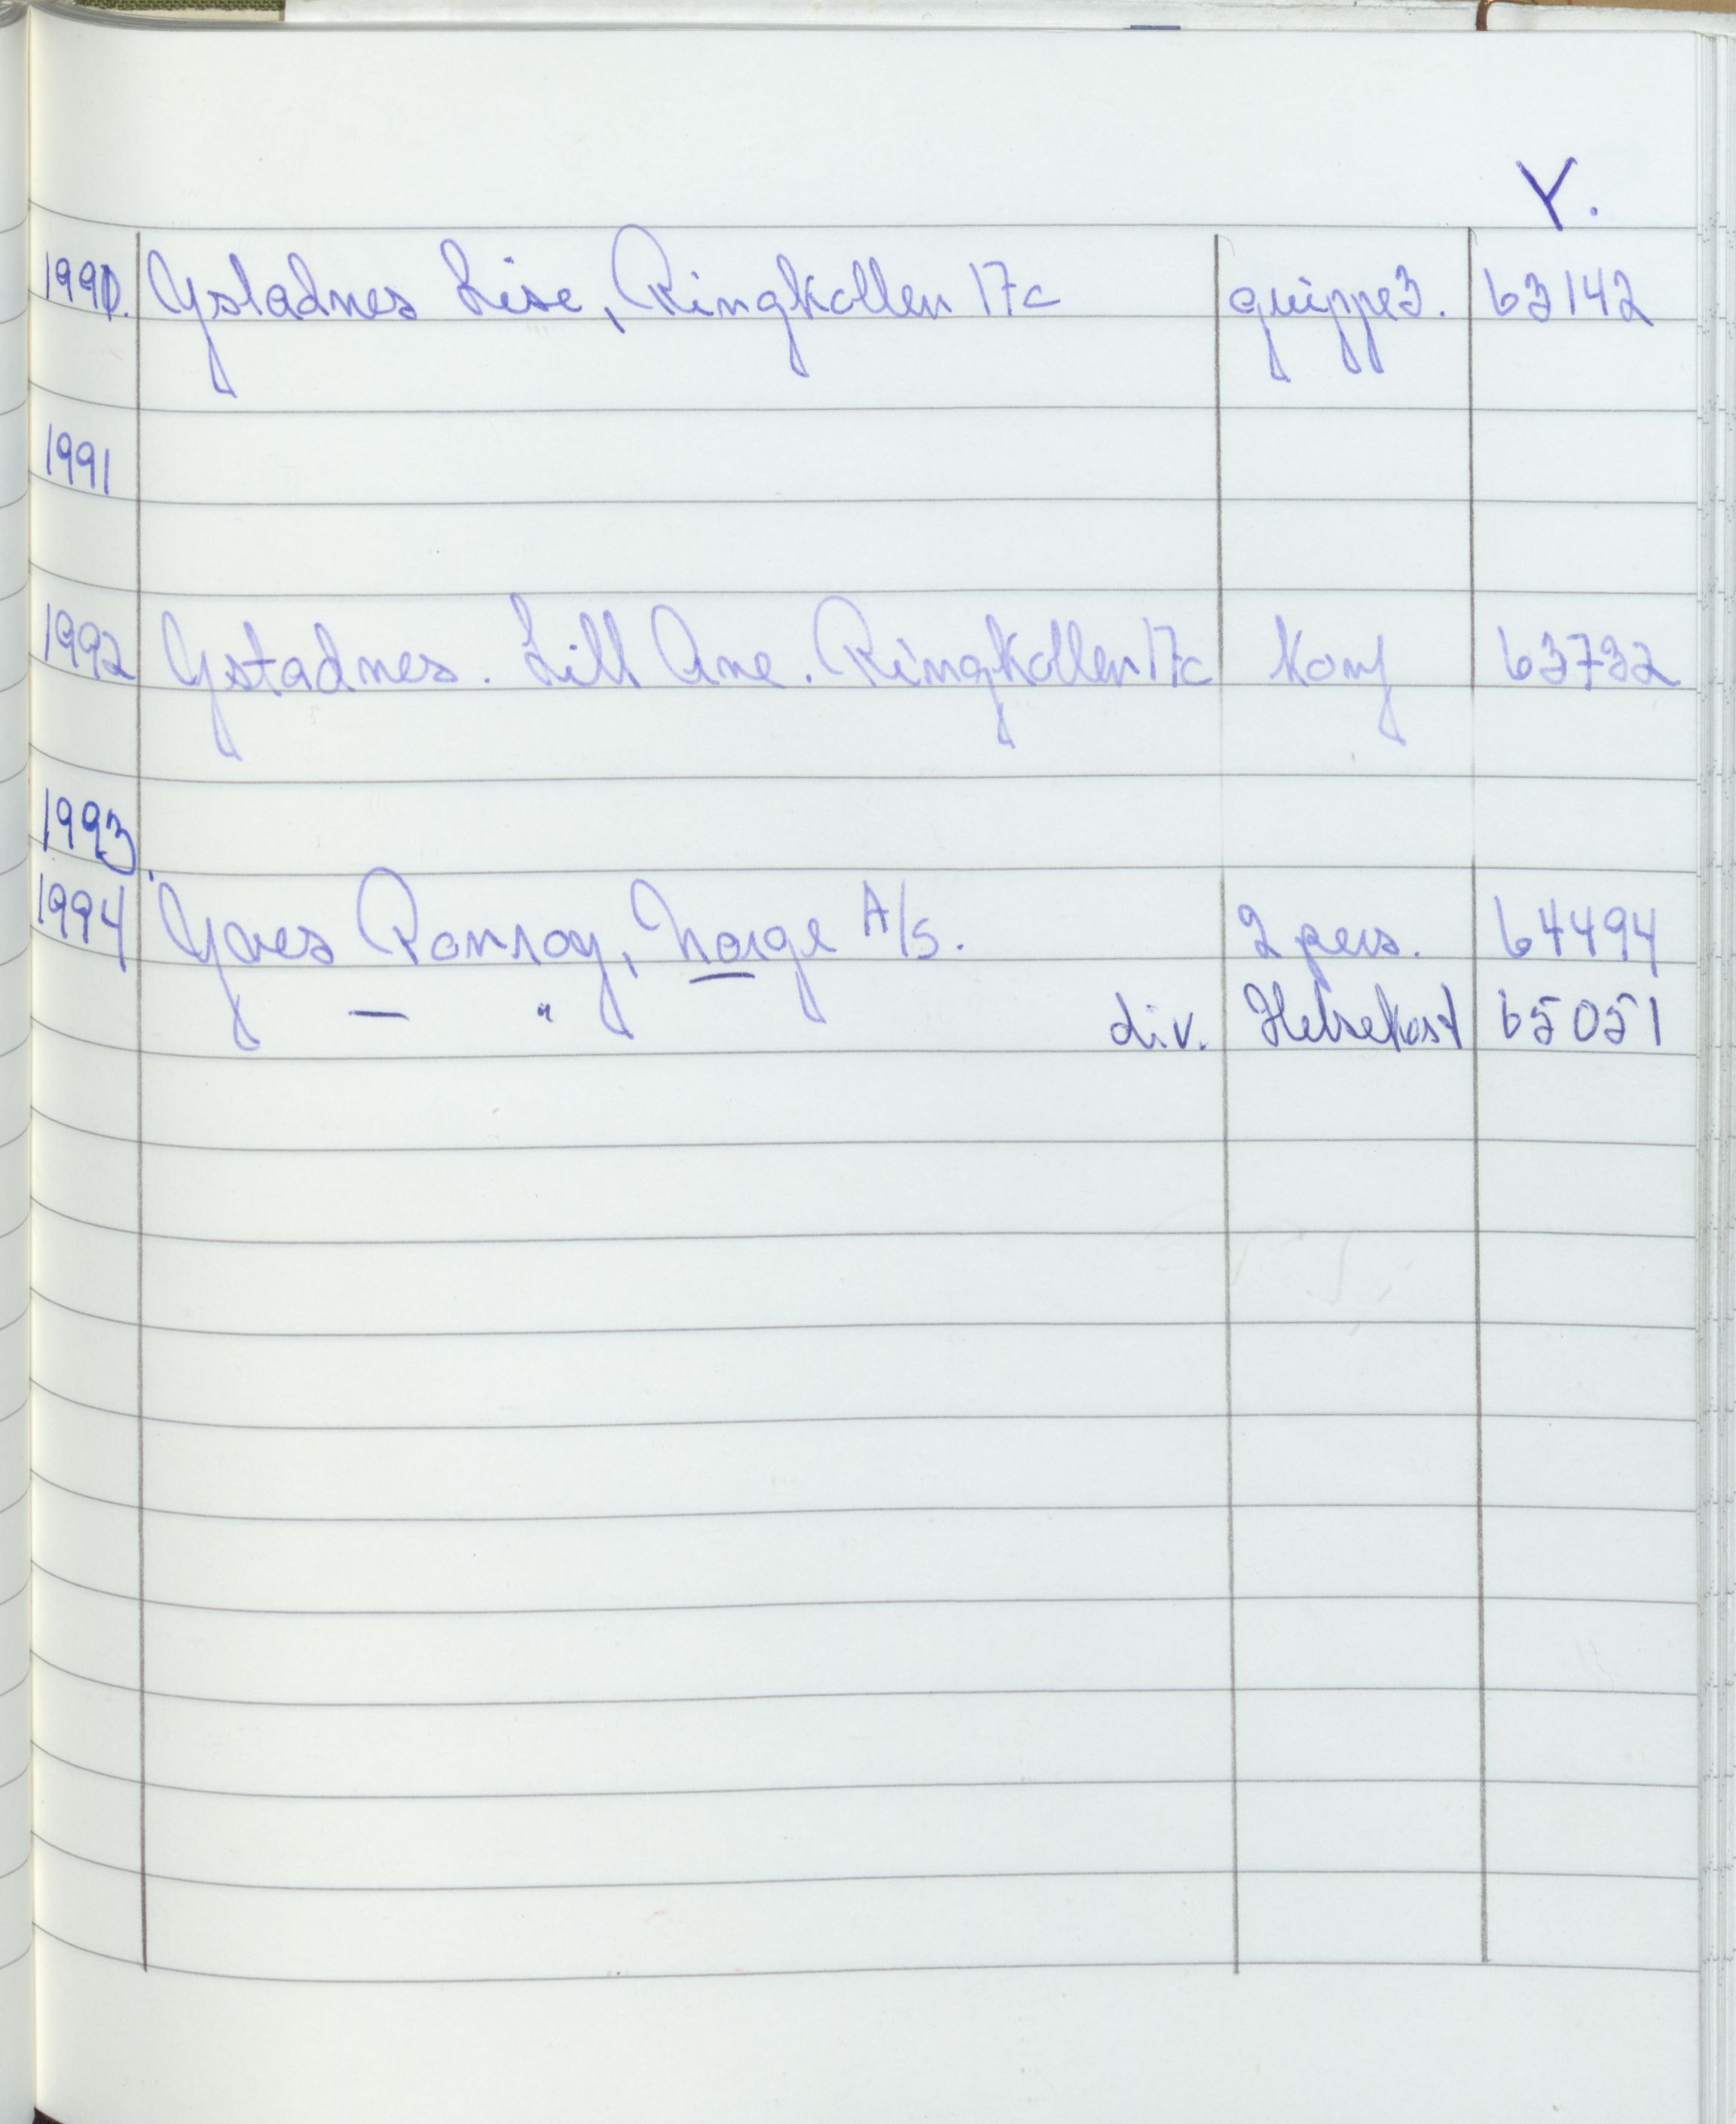 Y.
1990. Ystadnes Lise, Ringkollen 17c gruppe 3. 63142
1991
1992 Ystadnes. Lill Ane. Ringkollen 17c Konf 63732
1993.
1994 Yves Ronroy, Norge A/S. 2 pers. 64494
— " div. Helsekost 65051